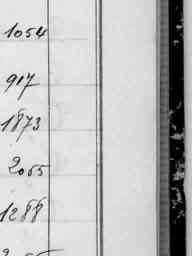 1054
917
1873
2065
1288